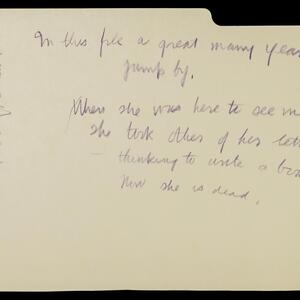 In this file a great many years
jump by.
When she was here to see m
she took other of her lett
— thinking to write a bo
Now she is dead.